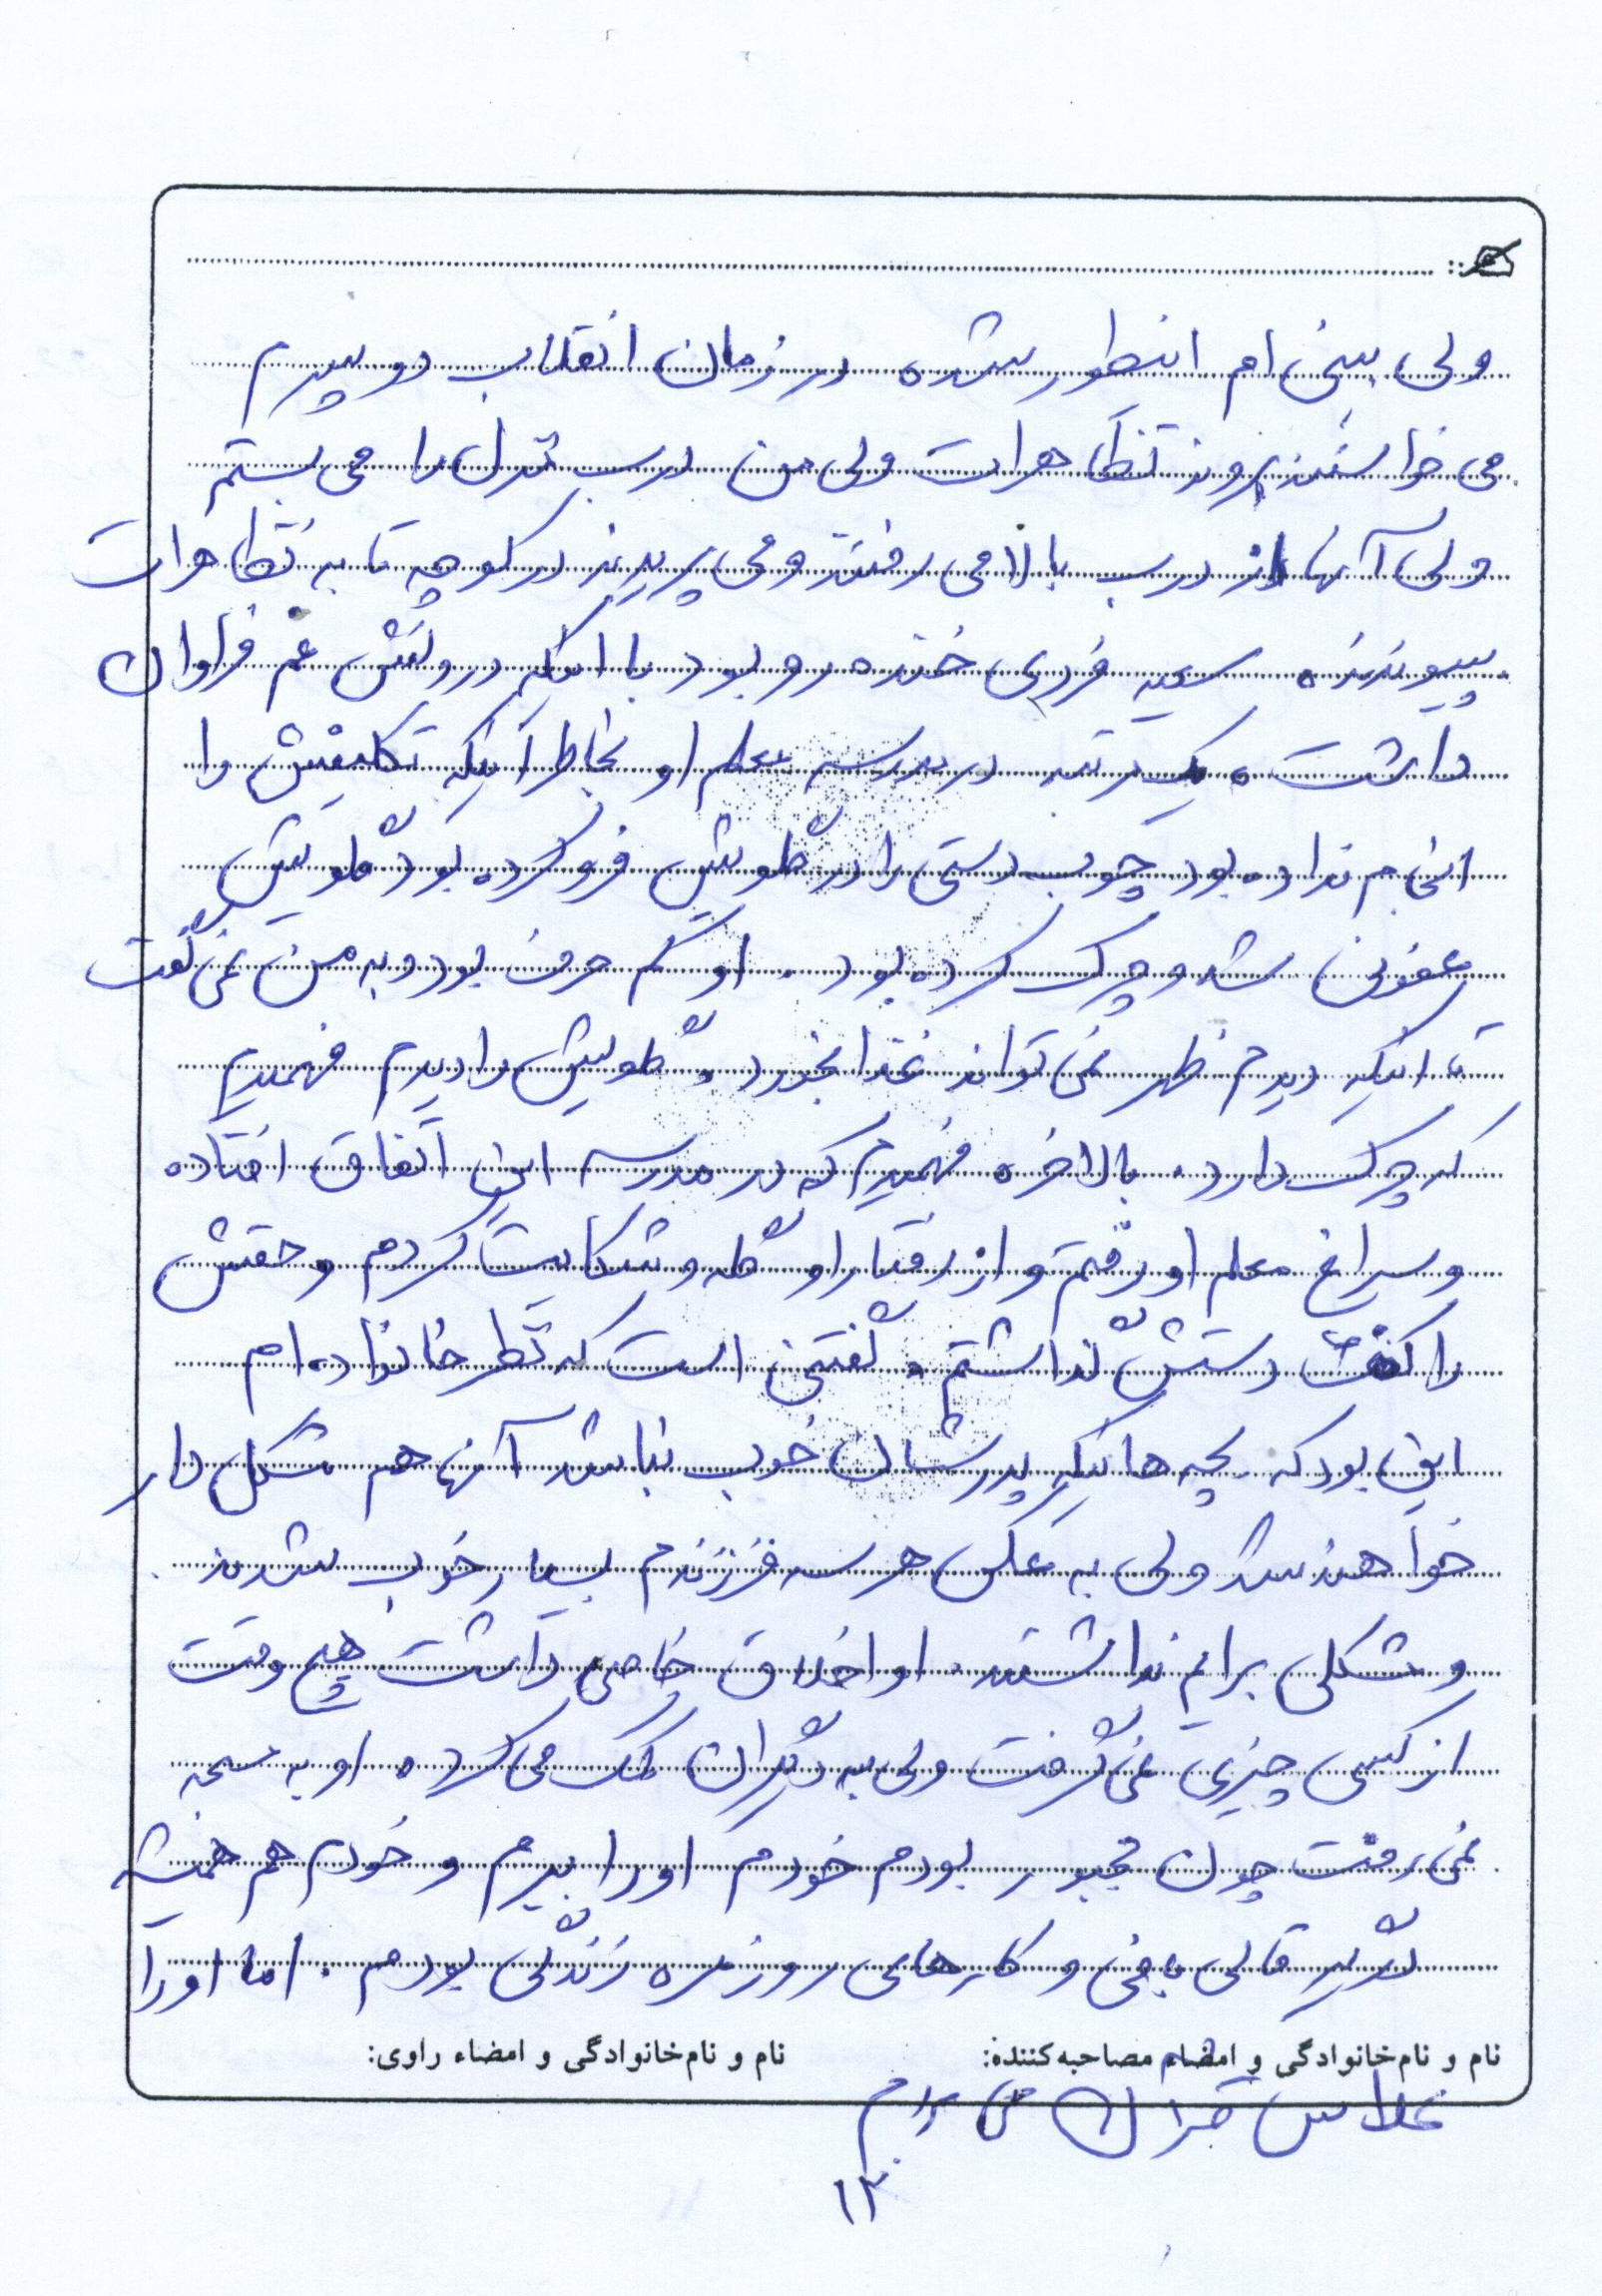 ولی بینی ام اینطور شده در زمان انقلاب دو پسرم
می خواستند بروند تظاهرات ولی من درب منزل را می بستم
ولی آنها از درب بالا می رفتند و می پریدند در کوچه تا به تظاهرات
بپیوندند. سعید فردی خنده رو بود با اینکه درونش غم فراوان
داشت. یک مرتبه در مدرسه معلم او بخاطر اینکه تکلیفش را
انجام نداده بود چوب دستی را در گلویش فرو کرده بود گلویش
عفونی شد و چرک کرده بود. او کم حرف بود و به من نمی گفت
تا اینکه دیدم ظهر نمی تواند غذا بخورد. گلویش را دیدم فهمیدم
که چرک دارد. بالاخره فهمیدم که در مدرسه این اتفاق افتاده
و سراغ معلم او رفتم و از رفتار او گله و شکایت کردم و حقش
را کف دستش گذاشتم. گفتنی است که نظر خانواده ام
این بود که بچه ها اگر پدرشان خوب نباشد آنها هم مشکل دار
خواهند شد ولی به عکس هر سه فرزندم بسیار خوب شدند
و مشکلی برایم نداشتند. او اخلاق خاصی داشت هیچ وقت
از کسی چیزی نمی گرفت ولی به دیگران کمک می کرد. او به مسجد
نمی رفت چون مجبور بودم خودم او را ببرم و خودم هم همیشه
درگیر قالی بافی و کارهای روزمره زندگی بودم. اما او را
نام و نام‌خانوادگی و امضاء مصاحبه‌کننده: نام و نام‌خانوادگی و امضاء راوی:
کلاس قرآن می بردم
۱۲